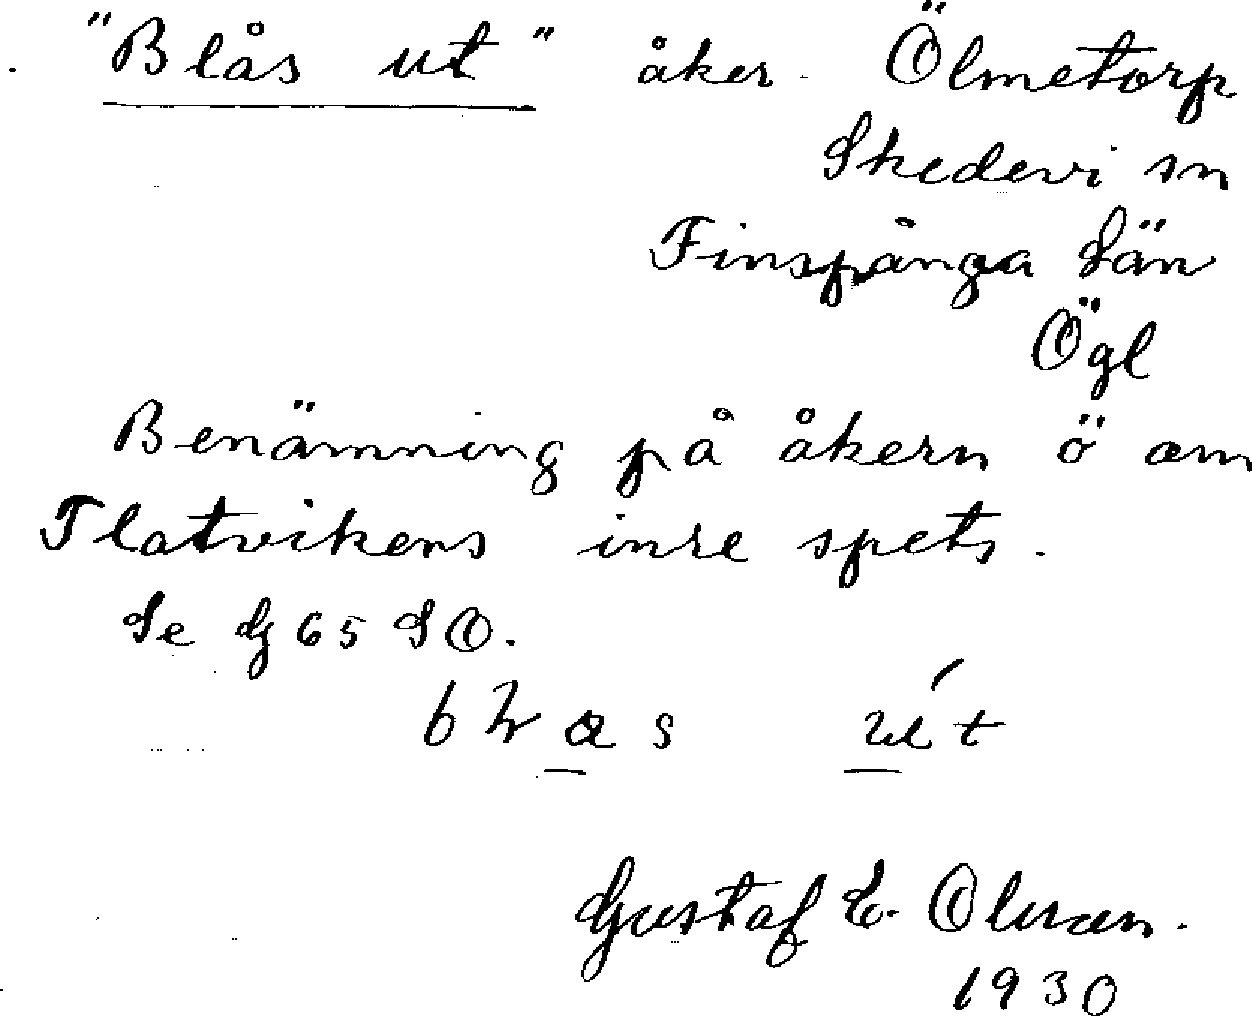 "Blås ut" åker Ölmetorp
Skedevi sn
Finspånga län
Ögl
Benämning på åkern ö om
Flatvikens inre spets.
Se G 65 SO.
út
Gustaf E.
1930